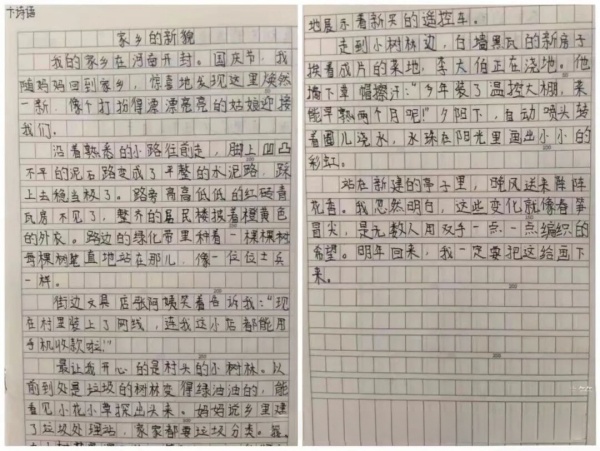 卞诗语
家乡的新貌
我的家乡在河南开封。国庆节,我
随妈妈回到家乡,惊喜地发现这里焕然
一新,像个打扮得漂漂亮亮的姑娘迎接
我们。
沿着熟悉的小路往前走,脚上凹凸
不平的泥石路变成了平整的水泥路,踩
上去稳当极了。路旁高高低低的红砖青
瓦房不见了,整齐的居民楼披着橙黄色
的外衣。路边的绿化带里种着一棵棵树
每棵树笔直地站在那儿,像一位位士兵
一样。
街边文具店张阿姨笑着告诉我:“现
在村里装上了网线,连我这小店都能用
手机收款啦!”
最让我开心的是村头的小树林。以
前到处是垃圾的树林变得绿油油的,能
看见小花小草探出头来。妈妈说乡里建
了垃圾处理站,家家都要垃圾分类。
地展示着新买的遥控车。
走到小树林边,白墙黑瓦的新房子
拱着成片的菜地,李大伯正在浇地。他
摘下草帽擦汗:“今年装了温控大棚,菜
能早熟两个月呢!”夕阳下,自动喷头转
着圈儿浇水,水珠在阳光里画出小小的
彩虹。
站在新建的亭子里,晚风送来阵阵
花香。我忽然明白,这些变化就像春笋
冒尖,是无数人用双手一点一点编织的
希望。明年回来,我一定要把这给画下
来。